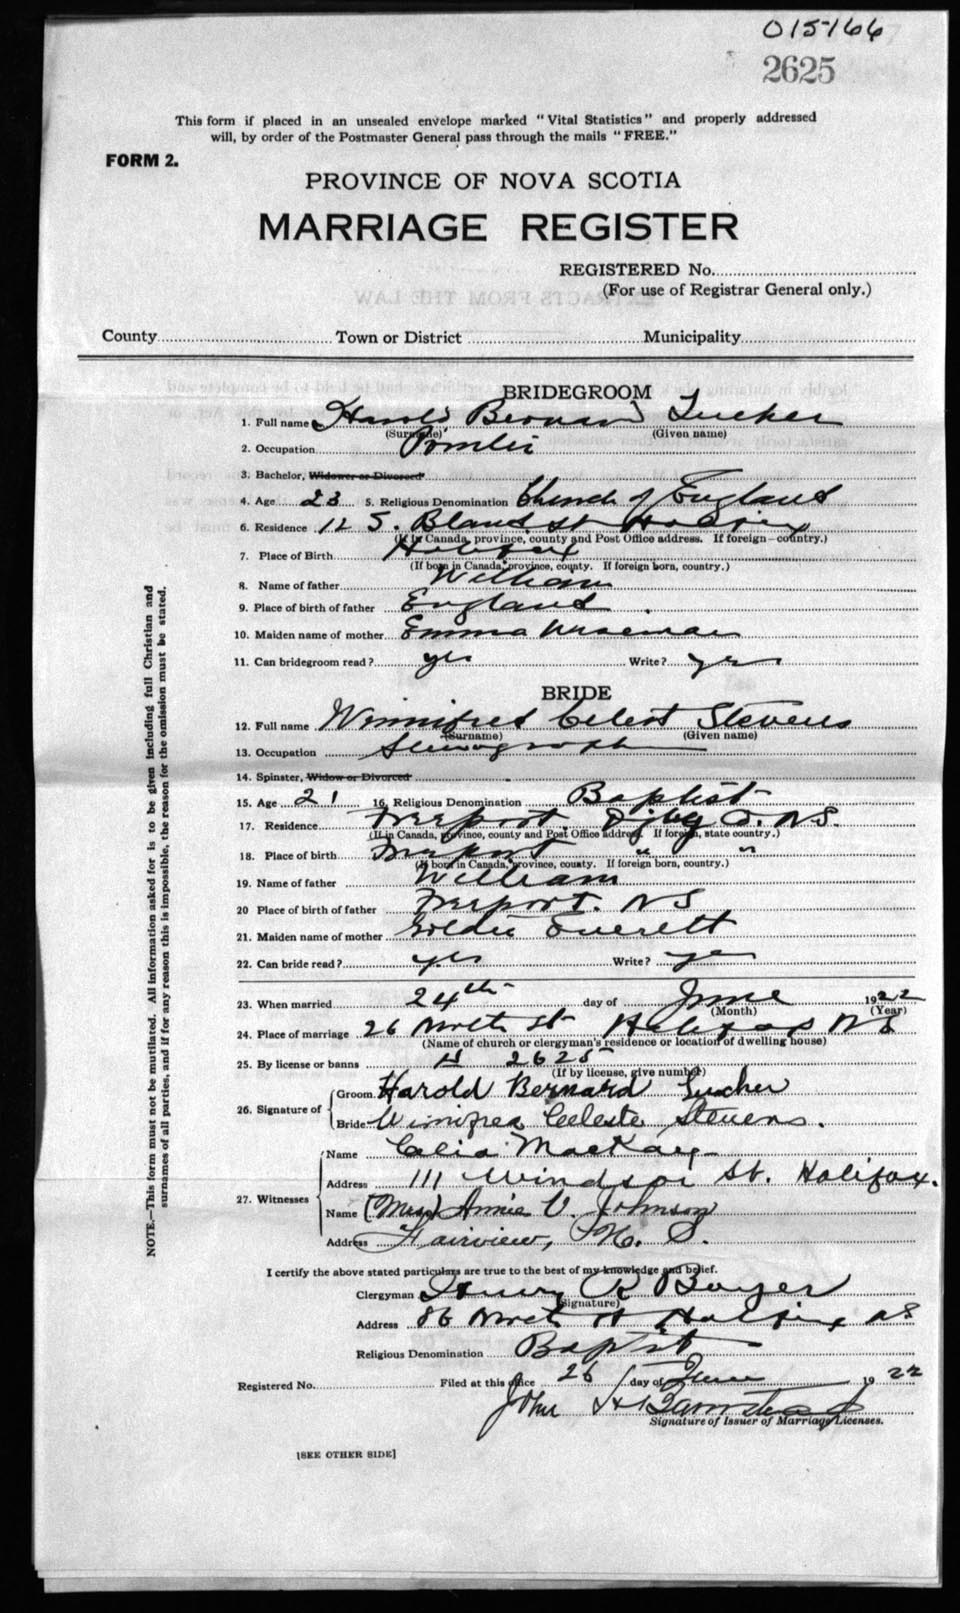 015166
2625
This form if placed in an unsealed envelope marked "Vital Statistics" and properly addressed
will, by order of the Postmaster General pass through the mails "FREE."
FORM 2.
PROVINCE OF NOVA SCOTIA
MARRIAGE REGISTER
REGISTERED No.
(For use of Registrar General only.)
County Town or District Municipality
BRIDEGROOM
1. Full name Harold Bernard Tucker
(Surname) (Given name)
2. Occupation
3. Bachelor, Widower or Divorced
4. Age 23 5. Religious Denomination Church of England
6. Residence 12 S. Bland St Halifax
(If in Canada, province, county and Post Office address. If foreign country.)
7. Place of Birth Halifax
(If born in Canada, province, county. If foreign born, country.)
8. Name of father William
9. Place of birth of father England
10. Maiden name of mother Emma
11. Can bridegroom read? yes Write? yes
BRIDE
12. Full name Winnifred Celest Stevens
(Surname) (Given name)
13. Occupation Stenographer
14. Spinster, Widow or Divorced
15. Age 21 16. Religious Denomination Baptist
17. Residence Freeport, Digby Co. N.S.
(If in Canada, province, county and Post Office address. If foreign, state country.)
18. Place of birth Freeport " "
(If born in Canada, province, county. If foreign born, country.)
19. Name of father William
20 Place of birth of father Freeport. N S
21. Maiden name of mother Goldie Everett
22. Can bride read? yes Write? yes
23. When married 24th day of June 1922
(Month) (Year)
24. Place of marriage 26 North St Halifax N S
(Name of church or clergyman's residence or location of dwelling house)
25. By license or banns 2625
(If by license, give number)
26. Signature of
Groom. Harold Bernard Tucker
Bride Winnifred Celeste Stevens.
27. Witnesses
Name Celia MacKay
Address 111 Windsor St. Halifax.
Name (Miss) Annie V. Johnson
Address Fairview, N. S.
I certify the above stated particulars are true to the best of my knowledge and belief.
Clergyman Henry R Boyer
(Signature)
Address 86 North St Halifax NS
Religious Denomination Baptist
Registered No. Filed at this office 26 day of June 1922
John H
Signature of Issuer of Marriage Licenses.
[SEE OTHER SIDE]
NOTE.—This form must not be mutilated. All information asked for is to be given including full Christian and
surnames of all parties, and if for any reason this is impossible, the reason for the omission must be stated.